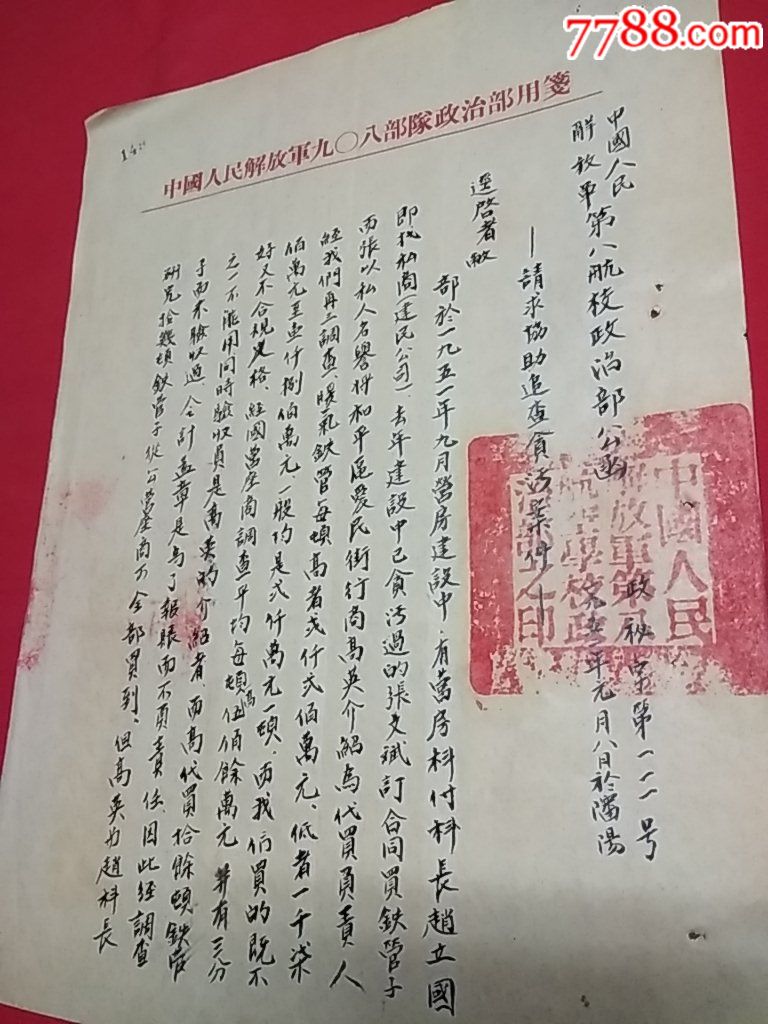 7788.com
中國人民解放軍九〇八部隊政治部用箋
中國人民
解放軍第八航校政治部公函
政秘字第一一一号
—請求協助追查貪污案件—
元月八日於瀋陽
逕啓者敝
部於一九五一年九月營房建設中，有舊房科付科長趙立國
即找私商(建民公司)，去年建設中已貪污過的張文斌訂合同買鉄管子
而張以私人名譽将和平區愛民街行商高英介紹為代買負責人
經我們再三調查，暖氣鉄管每頓高者弍仟弍佰萬元，低者一千柒
佰萬元至壹仟捌佰萬元，一般均是弍仟萬元一頓，而我們買的既不
好又不合規格，經國营座商調查平均每頓高伍佰餘萬元，并有三分
元一不能用同時驗收員是高英的介紹者，而高代買拾餘頓鉄管
子而未驗收過，会計盖章是為了報賬而不負責任，因此經調查
研究拾幾頓鉄管子從公营座商不全部買到，但高英为趙科長
中國人民
解放軍第
航空學校政
治部之印